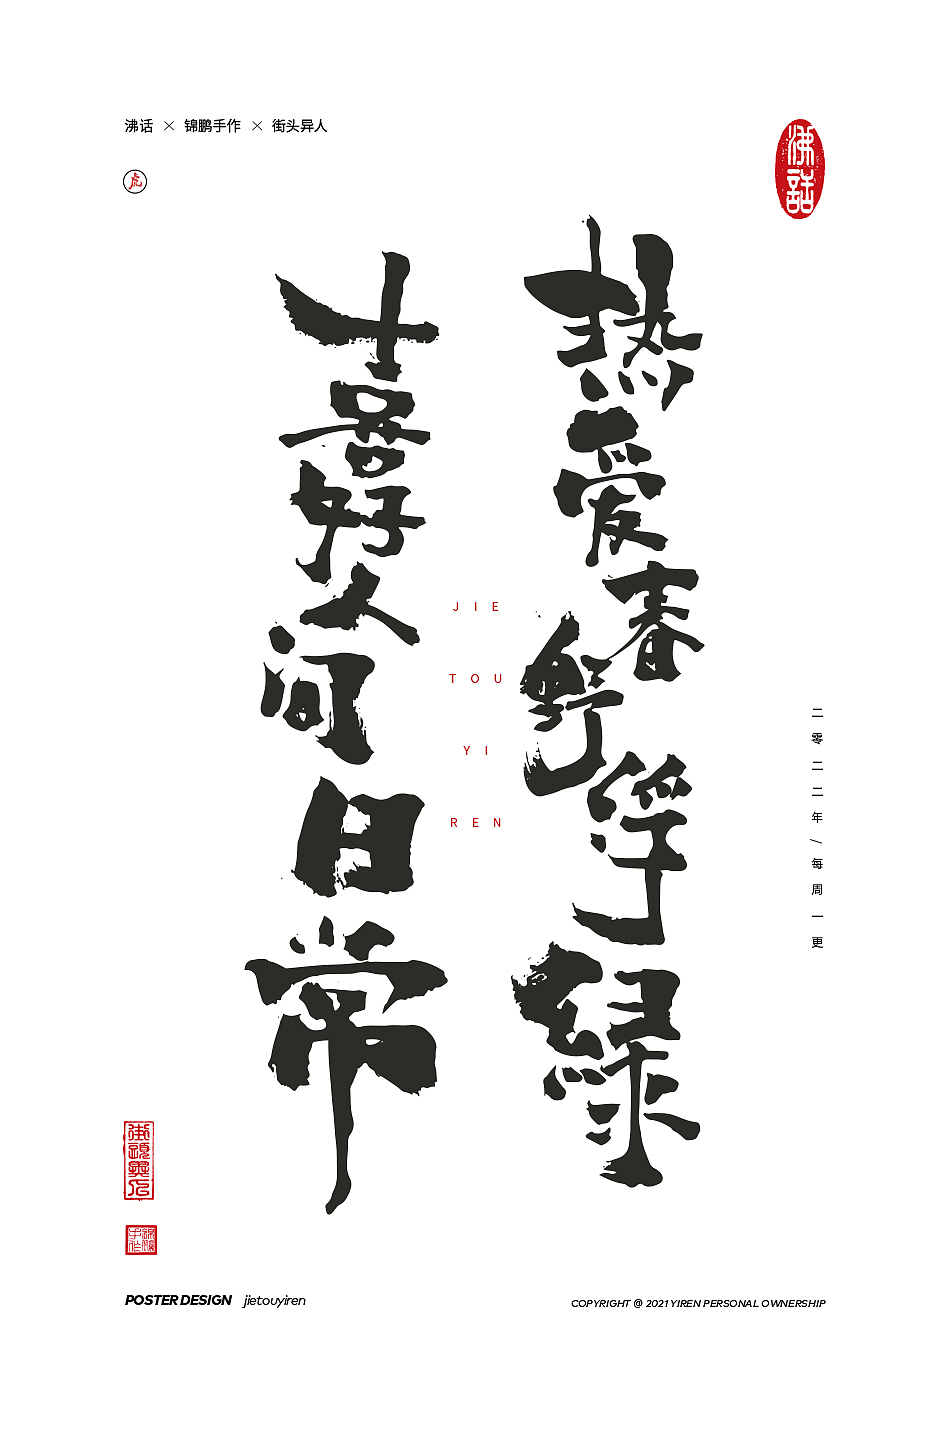 沸话 × 锦鹏手作 × 街头异人
虎
沸話
热爱春野浮绿
喜好人间日常
JIE
TOU
YI
REN
二零二二年/每周一更
街頭異人
锦鹏手作
POSTER DESIGN jietouyiren
COPYRIGHT @ 2021 YIREN PERSONAL OWNERSHIP